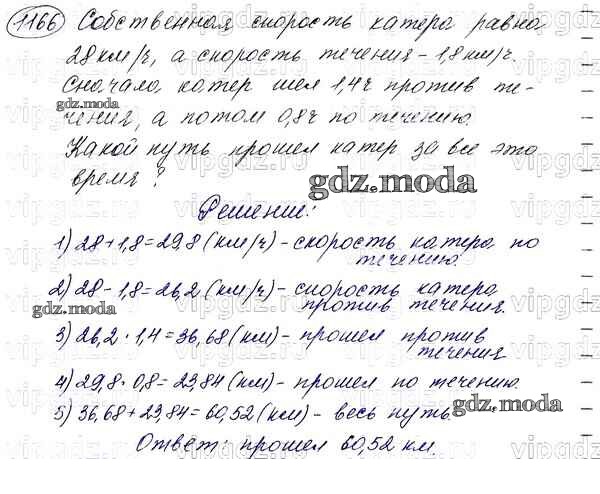 1166 Собственная скорость катера равна
28 км/ч, а скорость течения - 1,8 км/ч.
Сначала катер шел 1,4 ч против те-
gdz.moda
чения, а потом 0,8 ч по течению.
Какой путь прошел катер за все это
время?
gdz.moda
Решение:
1) 28 + 1,8 = 29,8 (км/ч) - скорость катера по
течению.
2) 28 - 1,8 = 26,2 (км/ч) - скорость катера
gdz.moda
против течения.
3) 26,2 · 1,4 = 36,68 (км) - прошел против
течения
4) 29,8 · 0,8 = 23,84 (км) - прошел по течению.
5) 36,68 + 23,84 = 60,52 (км) - весь путь
gdz.moda
Ответ: прошел 60,52 км.